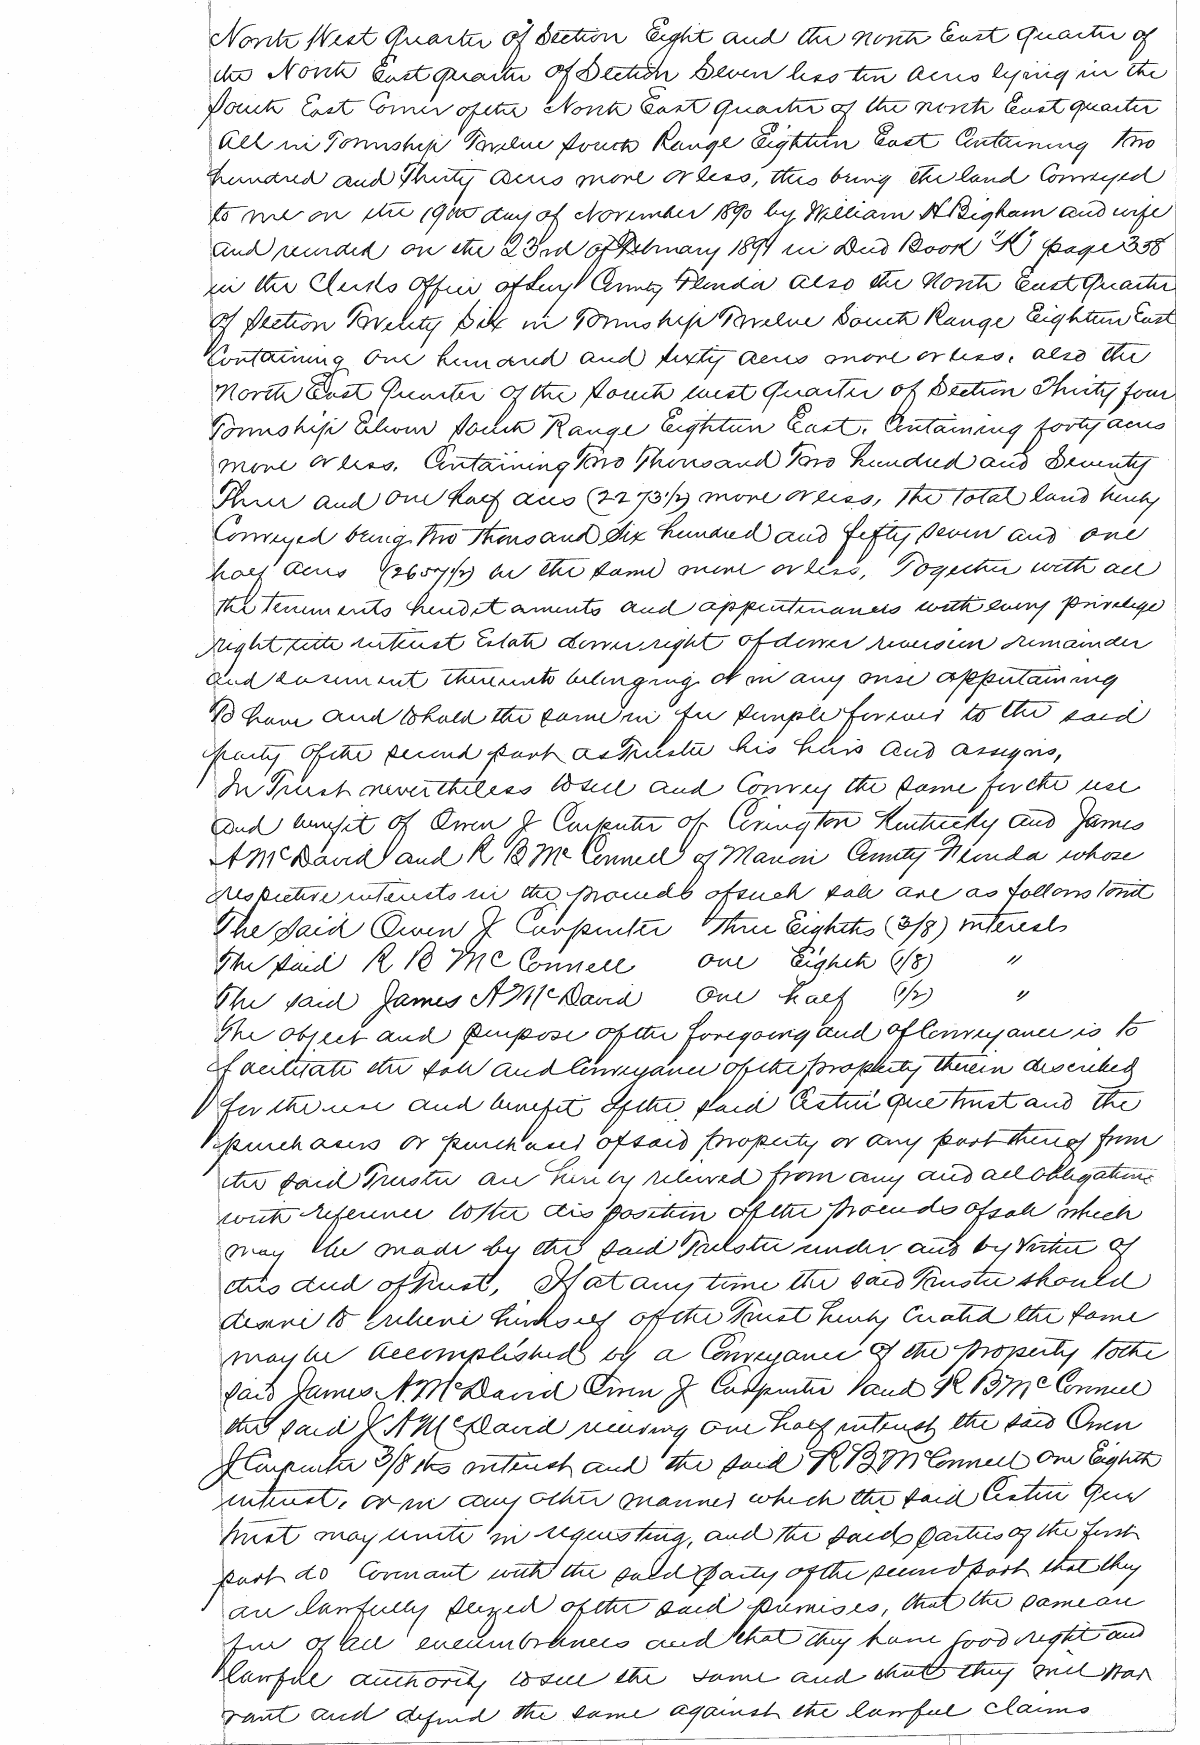 North West Quarter of Section Eight and the north East quarter of
the North East quarter of Section Seven less ten acres lying in the
South East Corner of the North East quarter of the north East quarter
All in Township Twelve South Range Eighteen East Containing two
hundred and Thirty acres more or less, this being the land Conveyed
to me on the 19th day of November 1890 by William H Bigham and wife
and recorded on the 23rd of February 1891 in Deed Book "K" page 338
in the Clerks office of Levy County Florida also the North East Quarter
of Section Twenty Six in Township Twelve South Range Eighteen East
Containing one hundred and sixty acres more or less, also the
North East Quarter of the South west Quarter of Section Thirty four
Township Eleven South Range Eighteen East. Containing forty acres
more or less. Containing Two Thousand Two hundred and Seventy
Three and one half acres (2273 1/2) more or less, The total land hereby
Conveyed being Two thousand Six hundred and fifty seven and one
half acres (2657 1/2) be the same more or less, Together with all
the tenements hereditaments and appurtenances with every privilege
right title interest Estate dower right of dower reversion remainder
and easement thereunto belonging or in any wise appertaining
To have and to hold the same in fee simple forever to the said
party of the second part as Trustee his heirs and assigns,
In Trust nevertheless to sell and Convey the same for the use
and benefit of Owen J Carpenter of Covington Kentucky and James
A McDavid and R B McConnell of Marion County Florida whose
respective interests in the proceeds of such sale are as follows towit
The said Owen J Carpenter three Eighths (3/8) interests
The said R B McConnell one Eighth (1/8) "
The said James A McDavid one half (1/2) "
The object and purpose of the foregoing and of Conveyance is to
facilitate the sale and Conveyance of the property therein described
for the use and benefit of the said Cestui que trust and the
purchasers or purchaser of said property or any part thereof from
the said Trustee are hereby relieved from any and all obligations
with reference to the disposition of the proceeds of sale which
may be made by the said Trustee under and by virtue of
this deed of Trust, If at any time the said Trustee should
desire to relieve himself of the Trust hereby created the same
may be accomplished by a Conveyance of the property to the
said James A. McDavid Owen J Carpenter and R B McConnell
the said J A McDavid receiving one half interest the said Owen
J Carpenter 3/8ths interest and the said R B McConnell one Eighth
interest, or in any other manner which the said Cestui Que
trust may unite in requesting, and the said parties of the first
part do Covenant with the said party of the second part that they
are lawfully seized of the said premises, that the same are
free of all encumbrances and that they have good right and
lawful authority to sell the same and that they will war
rant and defend the same against the lawful claims